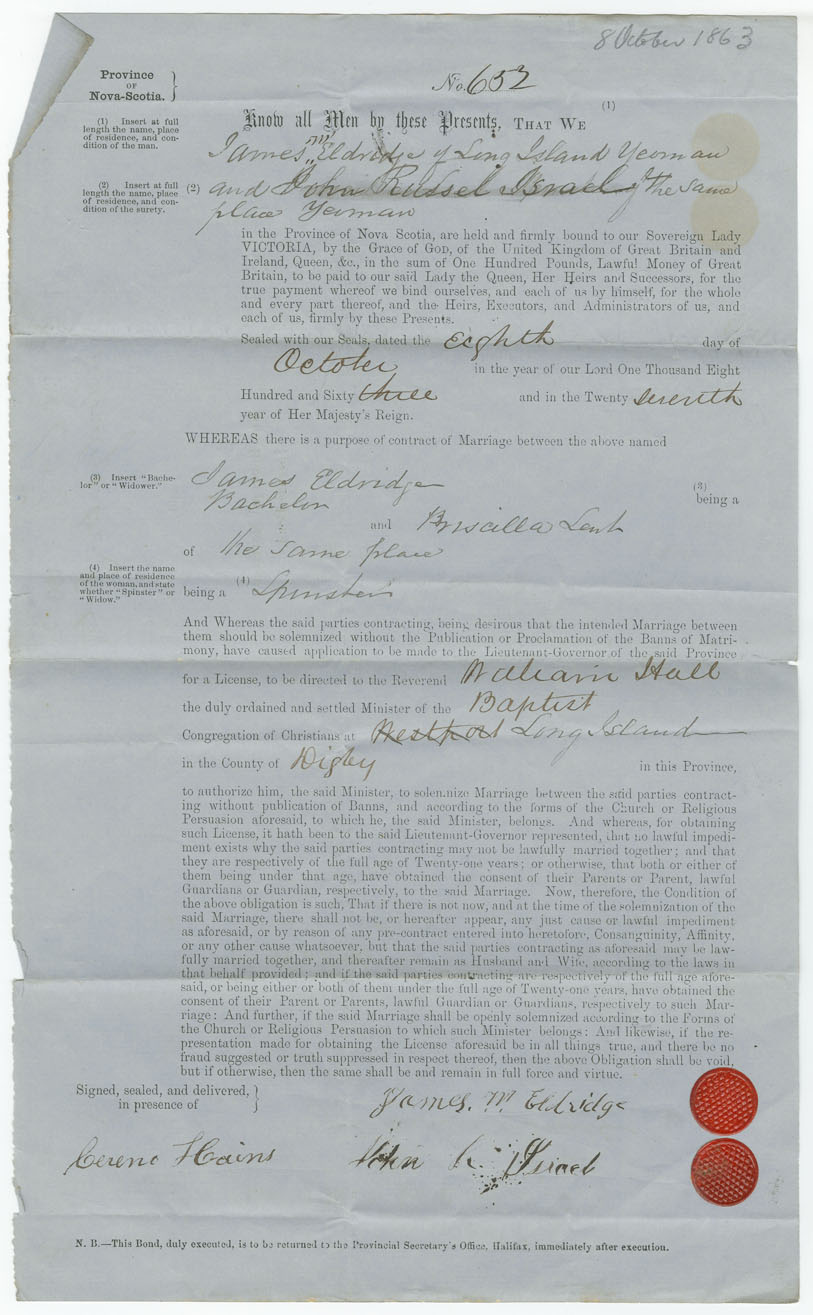 8 October 1863
Province
OF
Nova-Scotia.
No. 652
(1)
Know all Men by these Presents, THAT WE
(1) Insert at full
length the name, place
of residence, and con-
dition of the man.
James "M" Eldridge of Long Island Yeoman
(2) Insert at full
length the name, place
of residence, and con-
dition of the surety.
(2) and John Russel Israel of the same
place Yeoman
in the Province of Nova Scotia, are held and firmly bound to our Sovereign Lady
VICTORIA, by the Grace of GOD, of the United Kingdom of Great Britain and
Ireland, Queen, &c., in the sum of One Hundred Pounds, Lawful Money of Great
Britain, to be paid to our said Lady the Queen, Her Heirs and Successors, for the
true payment whereof we bind ourselves, and each of us by himself, for the whole
and every part thereof, and the Heirs, Executors, and Administrators of us, and
each of us, firmly by these Presents.
Sealed with our Seals, dated the Eighth day of
October in the year of our Lord One Thousand Eight
Hundred and Sixty three and in the Twenty seventh
year of Her Majesty's Reign.
WHEREAS there is a purpose of contract of Marriage between the above named
(3) Insert "Bache-
lor" or "Widower."
James Eldridge (3)
being a
Bachelor
and Priscilla Lent
of the same place
(4) Insert the name
and place of residence
of the woman, and state
whether "Spinster" or
"Widow."
being a (4) Spinster
And Whereas the said parties contracting, being desirous that the intended Marriage between
them should be solemnized without the Publication or Proclamation of the Banns of Matri-
mony, have caused application to be made to the Lieutenant-Governor of the said Province
for a License, to be directed to the Reverend William Hall
the duly ordained and settled Minister of the Baptist
Congregation of Christians at Westport Long Island
in the County of Digby in this Province,
to authorize him, the said Minister, to solemnize Marriage between the said parties contract-
ing without publication of Banns, and according to the forms of the Church or Religious
Persuasion aforesaid, to which he, the said Minister, belongs. And whereas, for obtaining
such License, it hath been to the said Lieutenant-Governor represented, that no lawful impedi-
ment exists why the said parties contracting may not be lawfully married together; and that
they are respectively of the full age of Twenty-one years; or otherwise, that both or either of
them being under that age, have obtained the consent of their Parents or Parent, lawful
Guardians or Guardian, respectively, to the said Marriage. Now, therefore, the Condition of
the above obligation is such, That if there is not now, and at the time of the solemnization of the
said Marriage, there shall not be, or hereafter appear, any just cause or lawful impediment
as aforesaid, or by reason of any pre-contract entered into heretofore, Consanguinity, Affinity,
or any other cause whatsoever, but that the said parties contracting as aforesaid may be law-
fully married together, and thereafter remain as Husband and Wife, according to the laws in
that behalf provided; and if the said parties contracting are respectively of the full age afore-
said, or being either or both of them under the full age of Twenty-one years, have obtained the
consent of their Parent or Parents, lawful Guardian or Guardians, respectively to such Mar-
riage: And further, if the said Marriage shall be openly solemnized according to the Forms of
the Church or Religious Persuasion to which such Minister belongs: And likewise, if the re-
presentation made for obtaining the License aforesaid be in all things true, and there be no
fraud suggested or truth suppressed in respect thereof, then the above Obligation shall be void,
but if otherwise, then the same shall be and remain in full force and virtue.
Signed, sealed, and delivered,
in presence of
James. M Eldridge
Cereno Hains
John R Israel
N. B.—This Bond, duly executed, is to be returned to the Provincial Secretary's Office, Halifax, immediately after execution.